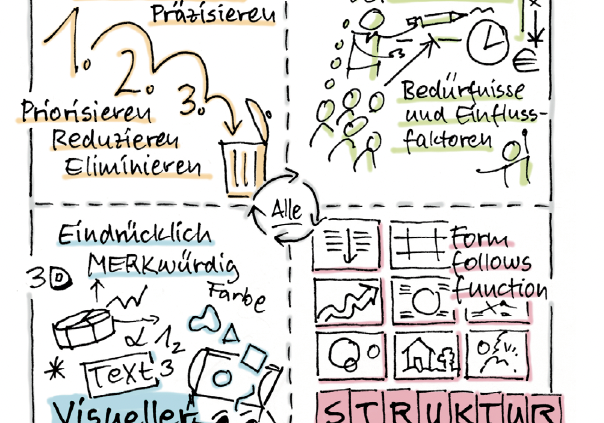 Präzisieren
1.
2.
3.
Priorisieren
Reduzieren
Eliminieren
€
Bedürfnisse
und Einfluss-
faktoren
Alle
Eindrücklich
MERKwürdig
3D
Farbe
α 1 2 3
* Text
Visueller
Form
follows
function
STRUKTUR